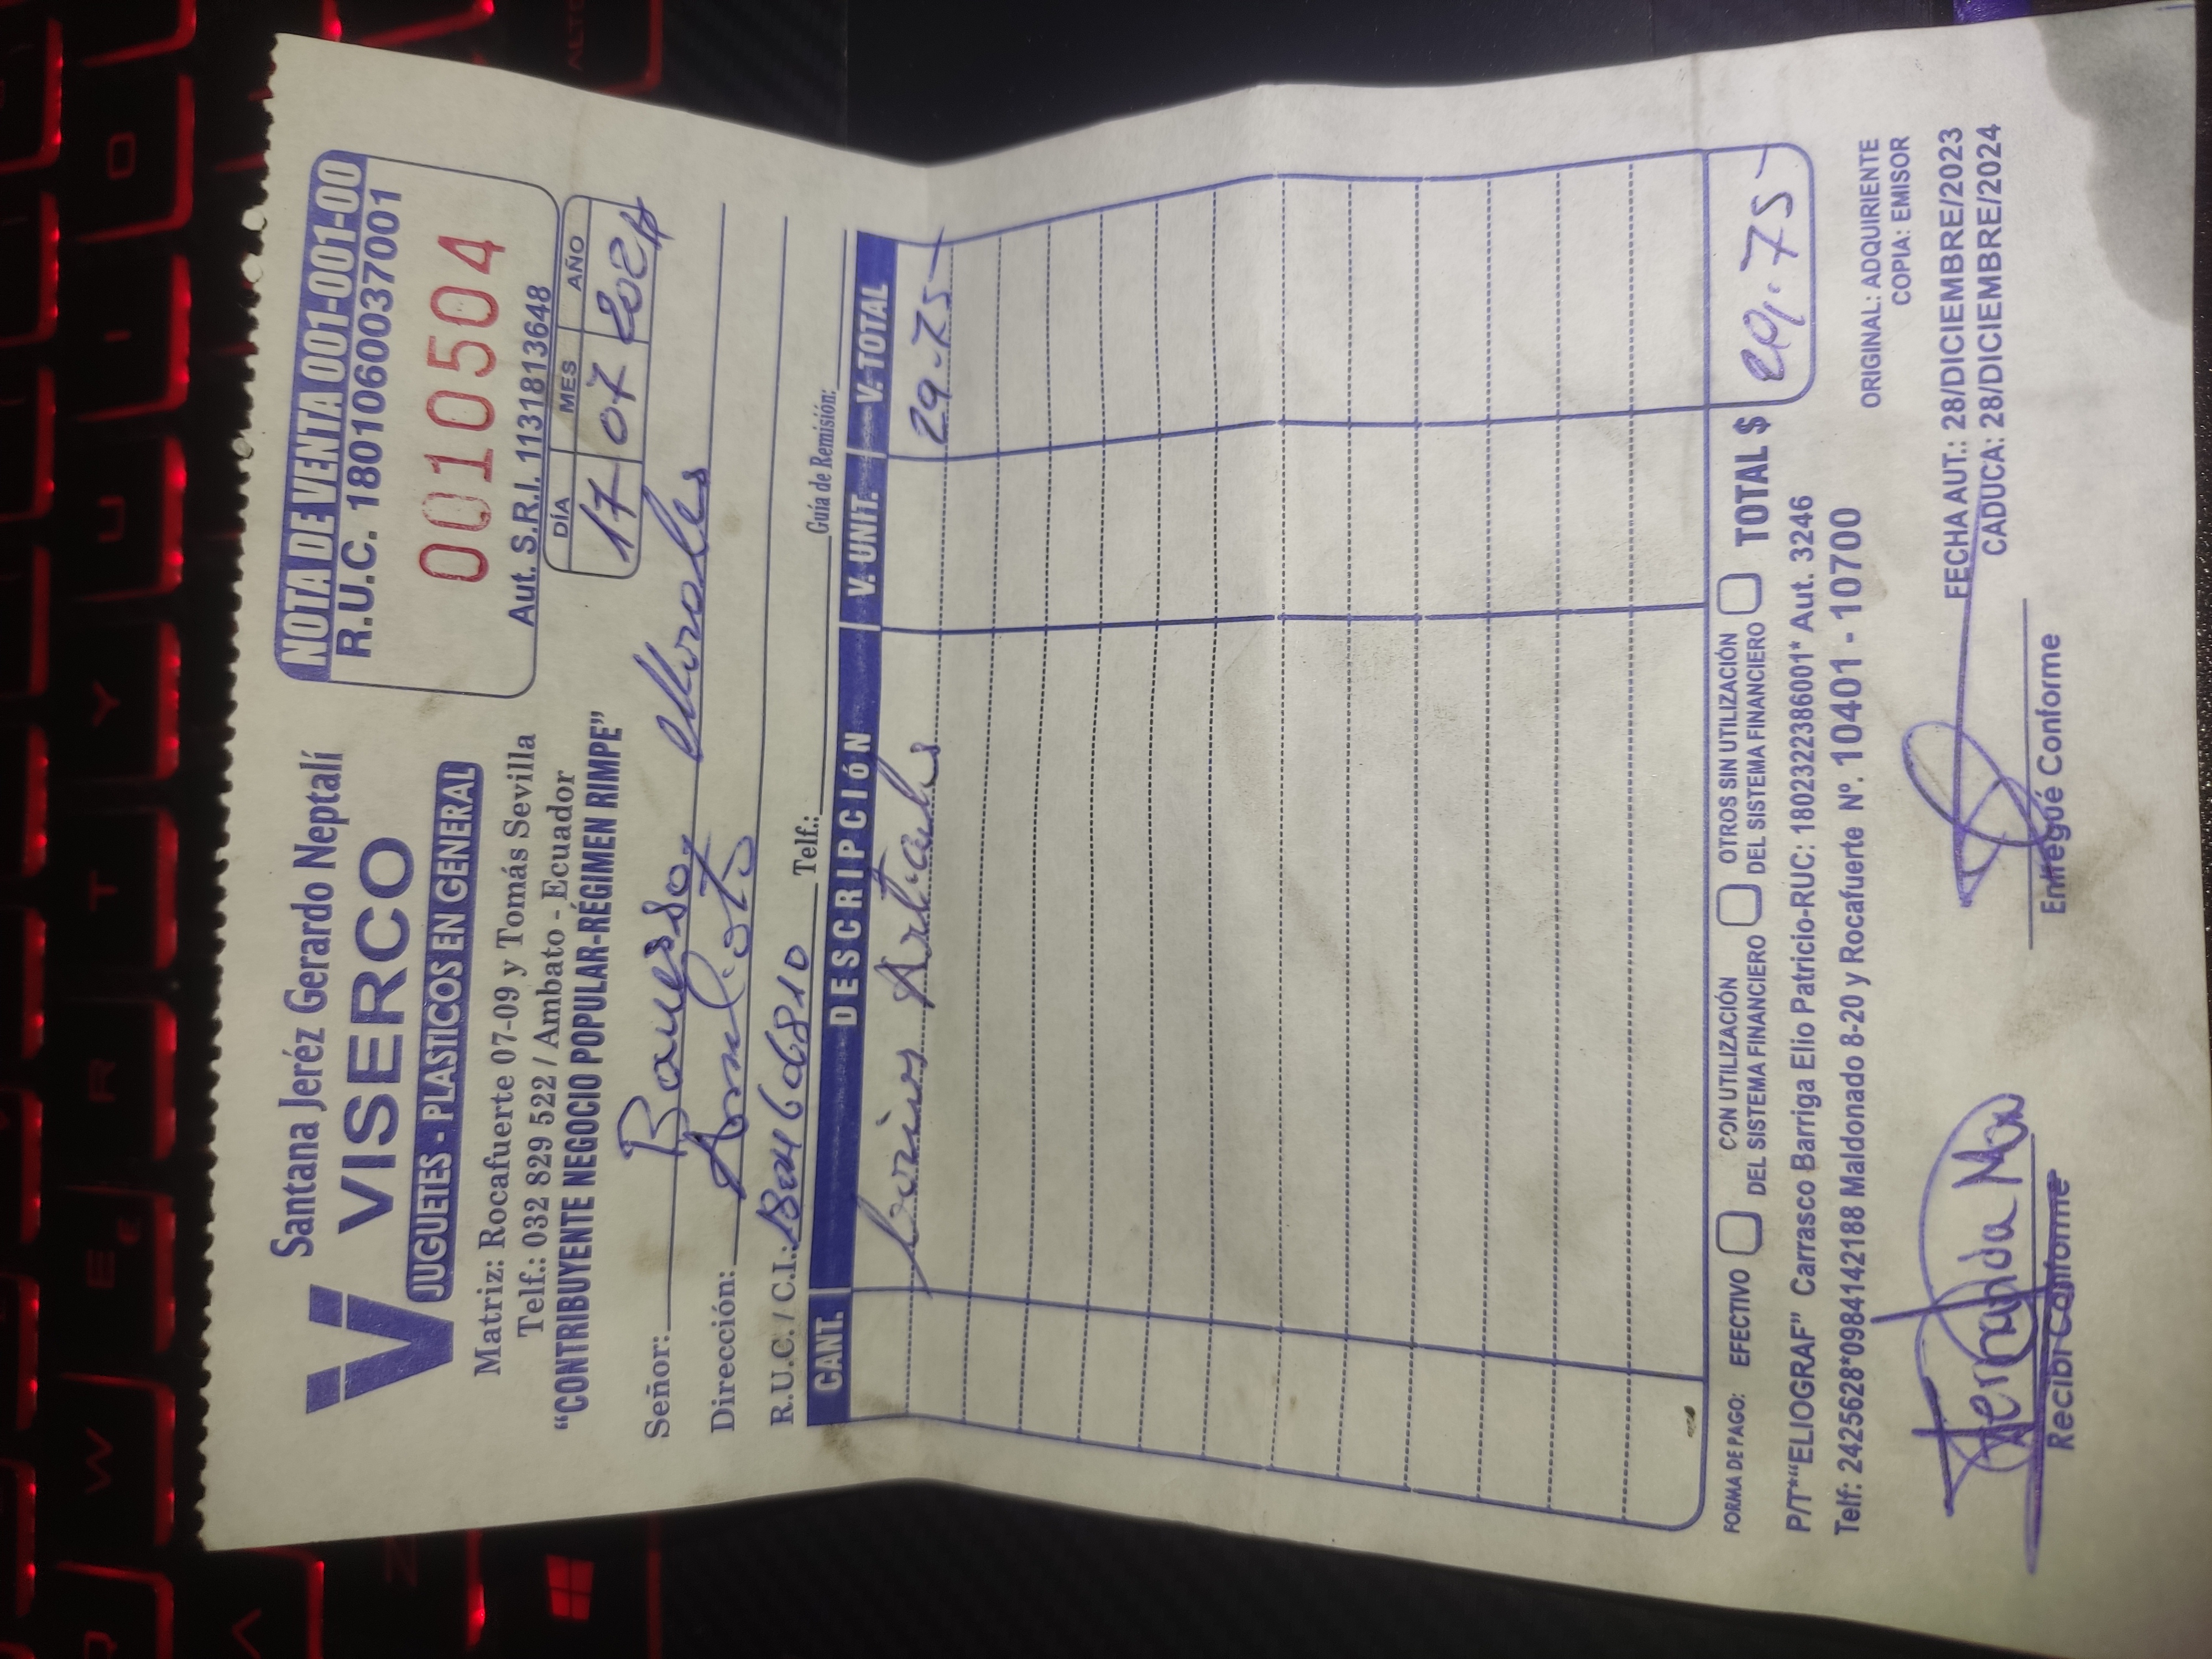 Q W E R T Y U I O
€
Santana Jeréz Gerardo Neptalí
V VISERCO
JUGUETES - PLASTICOS EN GENERAL
Matriz: Rocafuerte 07-09 y Tomás Sevilla
Telf.: 032 829 522 / Ambato - Ecuador
"CONTRIBUYENTE NEGOCIO POPULAR-RÉGIMEN RIMPE"
NOTA DE VENTA 001-001-00
R.U.C. 1801060037001
0010504
Aut. S.R.I. 1131813648
DÍA MES AÑO
17 07 2024
Señor: Banessa Morales
Dirección: Ambato
R.U.C. / C.I.: 1804606810 Telf.: Guía de Remisión:
CANT. DESCRIPCIóN V. UNIT. V. TOTAL
Varios Articulos 29.75
FORMA DE PAGO: EFECTIVO CON UTILIZACIÓN DEL SISTEMA FINANCIERO OTROS SIN UTILIZACIÓN DEL SISTEMA FINANCIERO TOTAL $ 29.75
P/T*"ELIOGRAF" Carrasco Barriga Elio Patricio-RUC: 1802322386001* Aut. 3246
Telf: 2425628*0984142188 Maldonado 8-20 y Rocafuerte Nº. 10401 - 10700
ORIGINAL: ADQUIRIENTE
COPIA: EMISOR
FECHA AUT.: 28/DICIEMBRE/2023
CADUCA: 28/DICIEMBRE/2024
Fernanda
Recibí Conforme Entregué Conforme